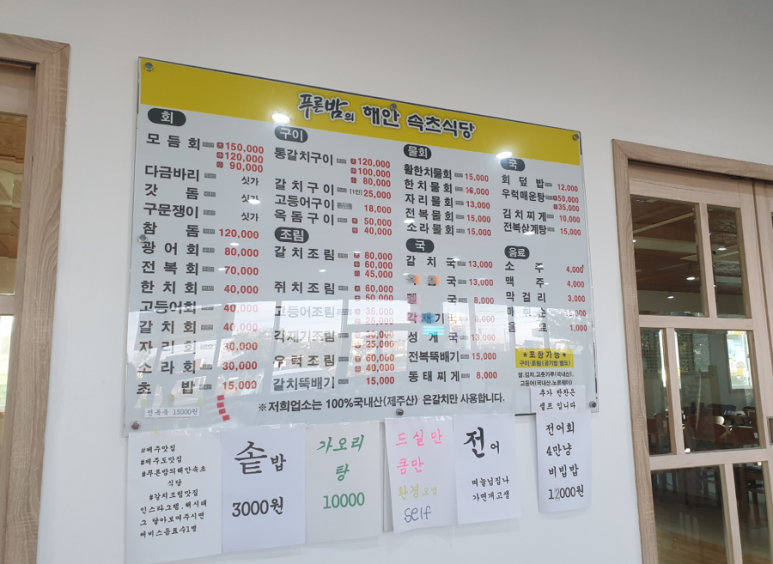 푸른밤의 해안 속초식당
회
모듬회 대 150,000
중 120,000
소 90,000
다금바리 싯가
갓돔 싯가
구문쟁이 싯가
참돔 120,000
광어회 80,000
전복회 70,000
한치회 40,000
고등어회 40,000
갈치회 40,000
자리회 30,000
소라회 30,000
초밥 15,000
전복죽 15000원
구이
통갈치구이 대 120,000
중 100,000
소 80,000
갈치구이 (1인) 25,000
고등어구이 18,000
옥돔구이 50,000
40,000
조림
갈치조림 대 80,000
중 60,000
소 45,000
쥐치조림 60,000
50,000
고등어조림 35,000
각재기조림
25,000
우럭조림 60,000
40,000
갈치뚝배기 15,000
물회
활한치물회 15,000
한치물회
자리물회 13,000
전복물회 15,000
소라물회 15,000
국
갈치국 13,000
국 13,000
멜국 8,000
각재기
성게국 10,000
전복뚝배기 15,000
동태찌개 8,000
국
회덮밥 12,000
우럭매운탕 50,000
35,000
김치찌개 10,000
전복삼계탕 15,000
음료
소주 4,000
맥주 4,000
막걸리 3,000
음료 1,000
※저희업소는 100%국내산(제주산) 은갈치만 사용합니다.
*포장가능*
구이·조림(공기밥 별도)
쌀,김치,고춧가루(국내산),
고등어(국내산,노르웨이)
#제주맛집
#제주도맛집
#푸른밤의해안속초
식당
#갈치조림맛집
인스타그램.해시태
그 달아보여주시면
서비스음료수1병
솥밥
3000원
가오리
탕
10000
드실 만
큼만
self
전어
며늘님집나
가면개고생
추가 반찬은
셀프 입니다
전어회
4만냥
비빔밥
12000원